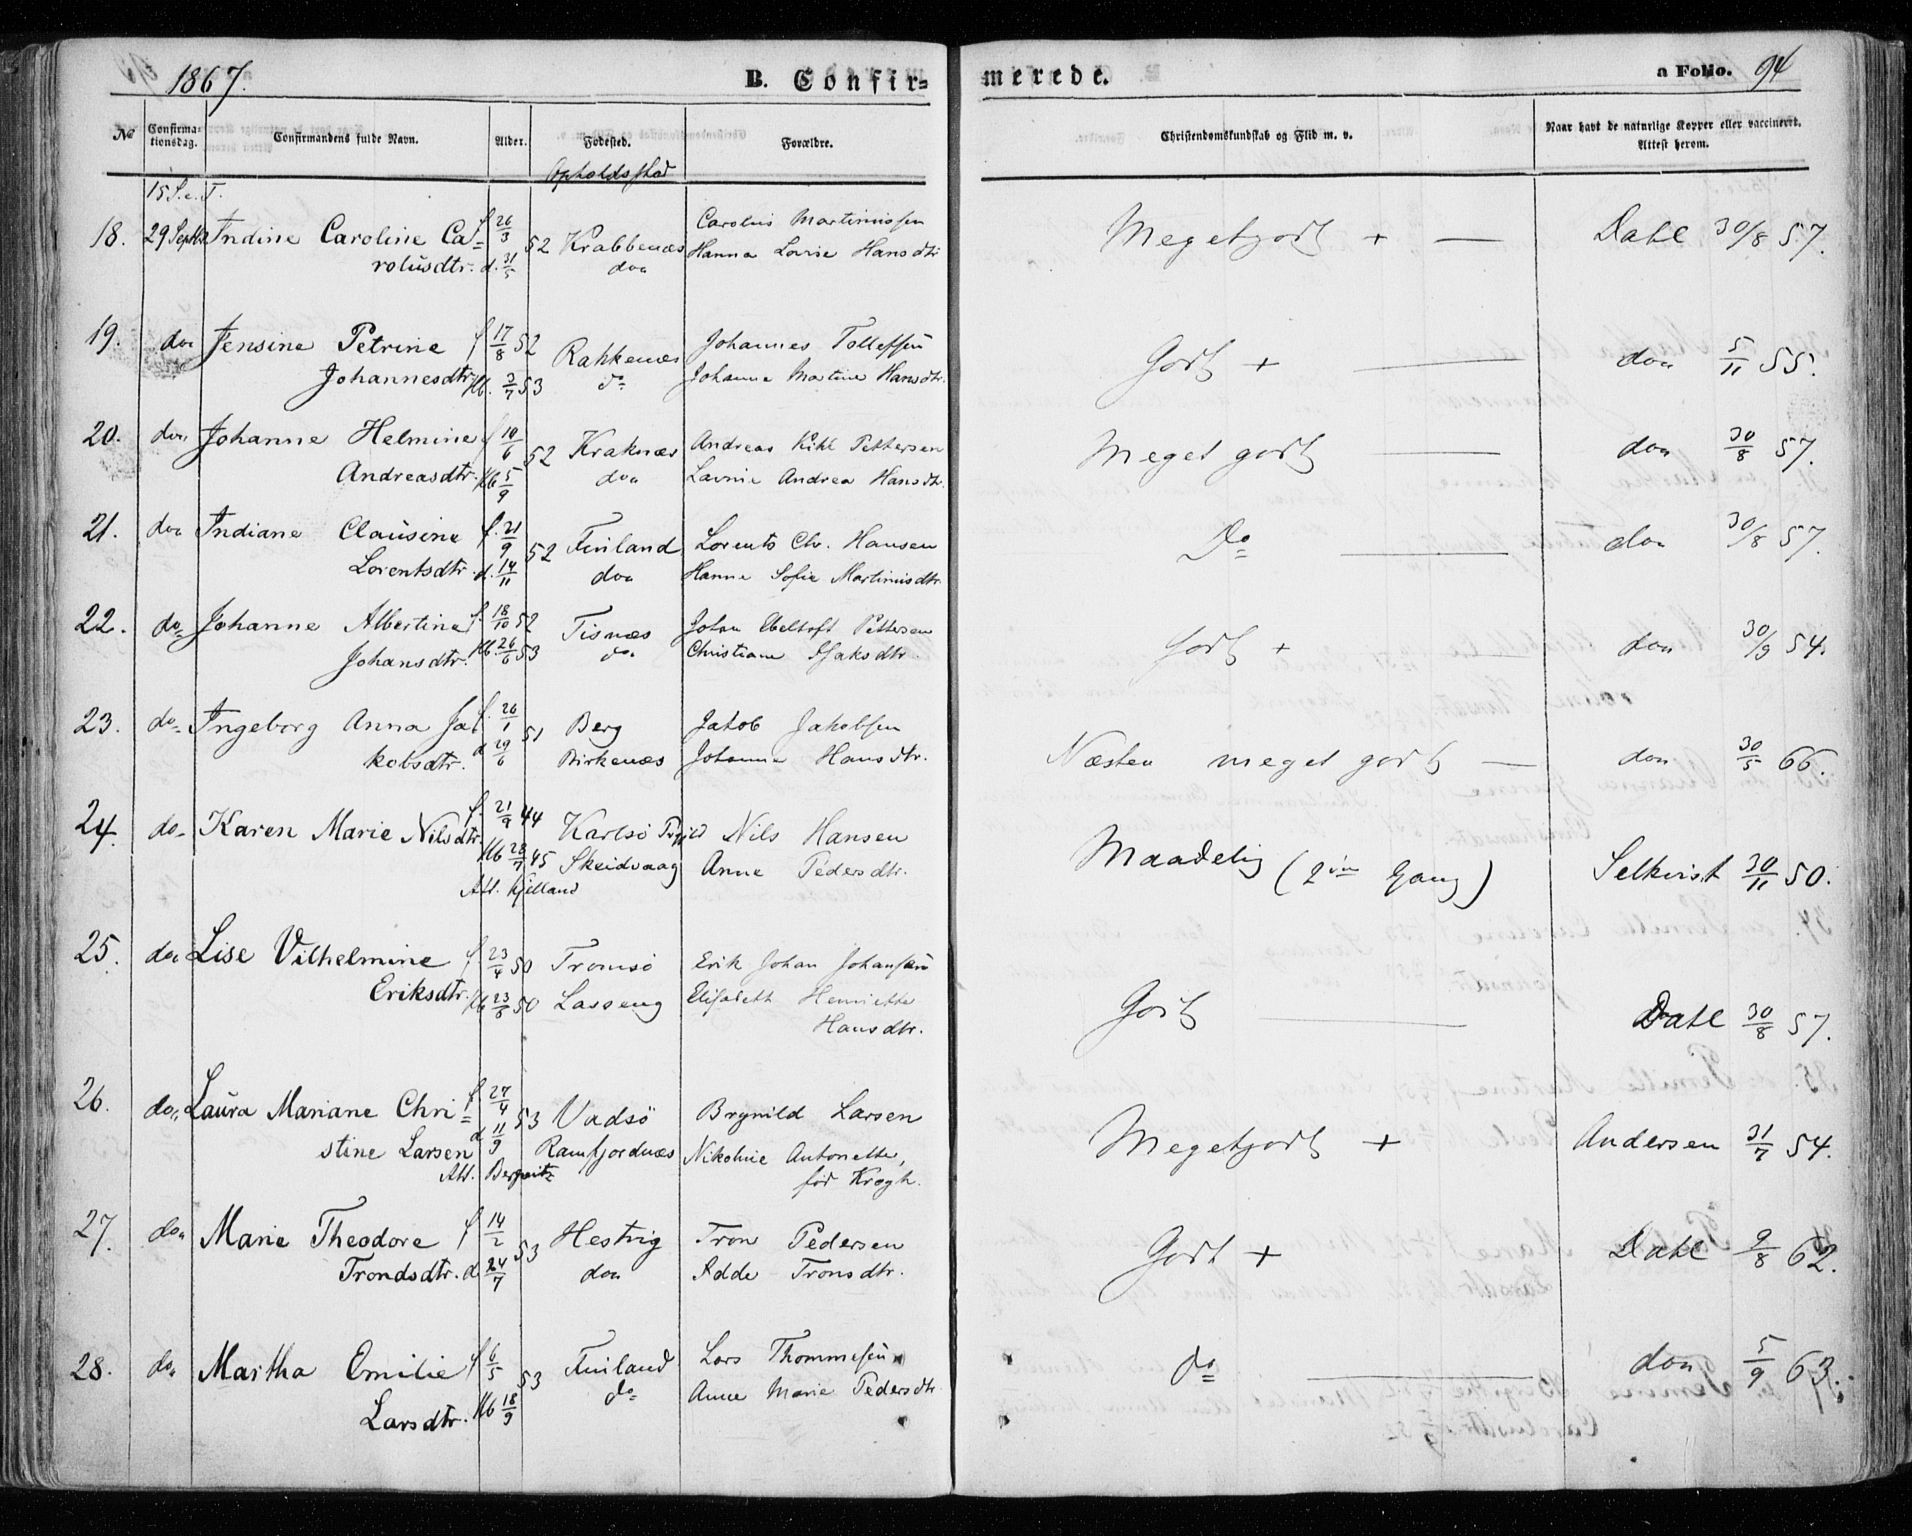 1867.
B. Confir=
merede.
a Folio. 94
No
Confirma-
tionsdag.
Confirmandens fulde Navn.
Alder.
Fødested.
Opholdssted
Forældre.
Christendomskundskab og Flid m. v.
Naar havt de naturlige Kopper eller vaccineret.
Attest herom.
15 S. e. T.
18. 29 Septbr Indine Caroline Ca= f. 26/3 52 Krabbenæs Carolus Martinussen Megetgodt + — Dahl 30/8 57.
rolusdtr. d. 31/5 doa Hanna Lovise Hansdtr
19. doa Jensine Petrine f 17/8 52 Rakkenæs Johannes Tollefsen Godt + — doa 5/11 55.
Johannesdtr. Hb. 3/7 53 do Johanna Martine Hansdtr.
20. doa Johanne Helmine f 10/6 52 Kraknæs Andreas Kihl Pettersen Meget godt — doa 30/8 57.
Andreasdtr. Hb 5/9 doa Lavinie Andrea Hansdtr.
21. doa Indiane Clausine f. 21/9 52 Finland Lorents Chr. Hansen Do — doa 30/8 57.
Lorentsdtr. d. 14/11 doa Hanne Sofie Martinusdtr.
22. do Johanne Albertine f. 18/10 52 Tisnæs Johan Ebeltoft Pettersen Godt + doa 30/9 54.
Johansdtr. Hb. 26/6 53 do Christiane Isaksdtr.
23. do Ingeborg Anna Ja= f. 26/1 51 Berg Jakob Jakobsen Næsten meget godt — doa 30/5 66.
kobsdtr. d 29/6 Birkenæs Johanna Hansdtr.
24. do Karen Marie Nilsdtr. f. 21/9 44 Karlsö Pgjld Nils Hansen Maadelig (2den Gang) Selkvist 30/11 50.
Hb 28/7 45 Skeidvaag Anne Pedersdtr.
Att. Kjelland
25. doa Lise Vilhelmine f 23/4 50 Tromsö Erik Johan Johansen Godt — Dahl 30/8 57.
Eriksdtr. Hb 23/8 50 Lasseng Elisabeth Henriette
Hansdtr.
26. do Laura Mariane Chri= f. 27/4 53 Vadsö Brynild Larsen Megetgodt + Andersen 31/7 54.
stine Larsen d 11/9 Ramfjordnæs Nikoline Antonette,
Att. født Krogh.
27. doa Marie Theodore f 14/2 53 Hestvig Tron Pedersen Godt + Dahl 9/8 62.
Trondsdtr. d 24/7 doa Adde Tronsdtr.
28. do Martha Emilie f 6/5 53 Finland Lars Thommesen do — doa 5/9 63.
Larsdtr. Hb 18/9 do Anne Marie Pedersdtr